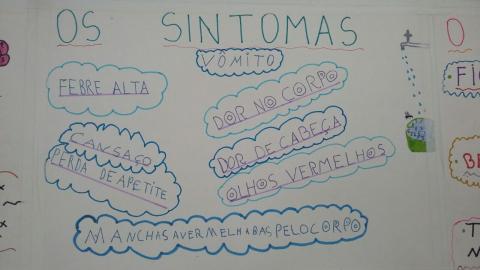 OS SINTOMAS
VÔMITO
FEBRE ALTA
DOR NO CORPO
CANSAÇO
DOR DE CABEÇA
PERDA DE APETITE
OLHOS VERMELHOS
MANCHAS AVERMELHADAS PELO CORPO
O